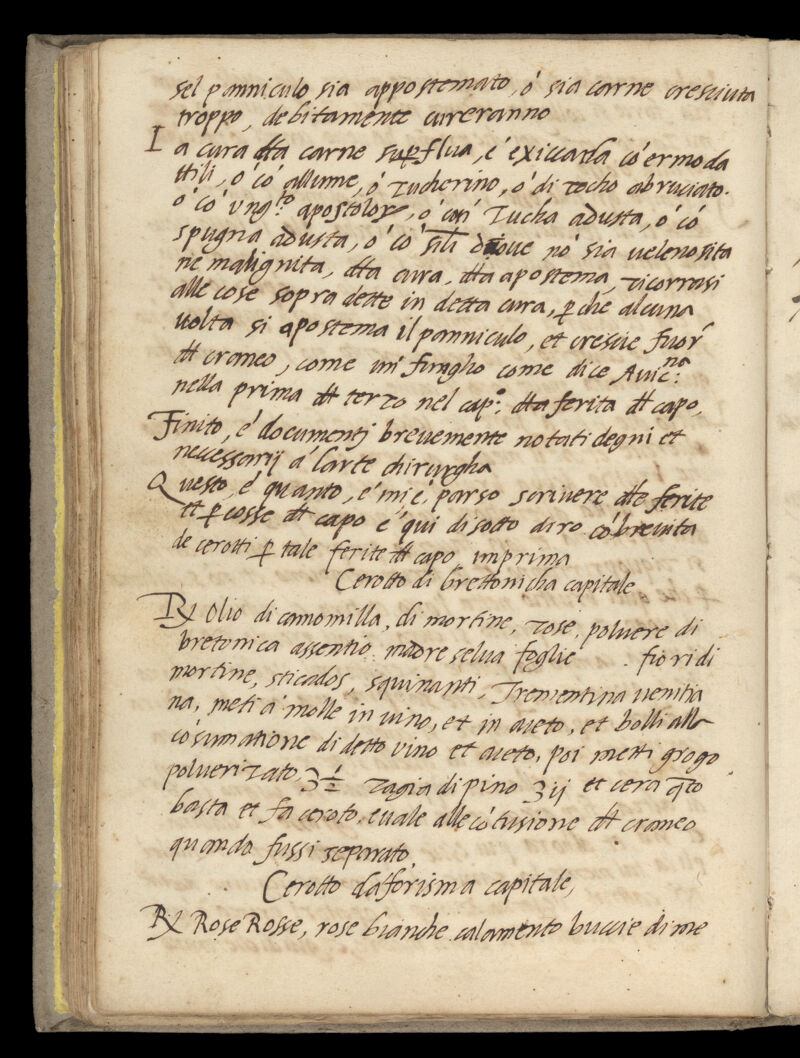 sel panniculo sia appostemato, ó sia carne cresciuta
troppo, debitamente cureranno
La cura dtta carne supflua, é exiccarla có ermoda
ttili, o có allume, ó zucherino, ó di rocho abruciato.
o có vng.to apostolor, ó có zucha adusta, ó có
spugna adusta, ó có sili doue nó sia uelenosita
ne malignita, dtta cura, dtta apostema, ricorrasi
alle cose sopra dette in detta cura, pche alcuna
uolta si apostema il panniculo, et crescie fuor
dl craneo, come un fungho come dice Auic.na
nella prima dl terzo nel cap.o dlla ferita dl capo,
Finito, é documentj breuemente notati degni et
neccessarij á larte chirurgha
Questo, é quanto, é mi é parso scriuere dlle ferite
et pcosse dl capo é qui disotto diro có breuita
de cerotti p tale ferite dl capo imprima
Cerotto di brettonicha capitale
℞ Olio di camomilla, di mortine, rose, poluere di
bretonica assentio madreselua foglie . fiori di
mortine, sticados, squinanti, Trementina uenitia
na, meti á molle in uino, et in aceto, et bolli alla
cósumatione di detto uino et aceto, poi metti grogo
poluerizato, ʒ ½ ragia di pino ʒ ij et cera qto
basta et fa ceroto, euale alle cótusione dl craneo
quando fussi separato,
Cerotto daforisma capitale,
℞ Rose Rosse, rose bianche calamento buccie di me